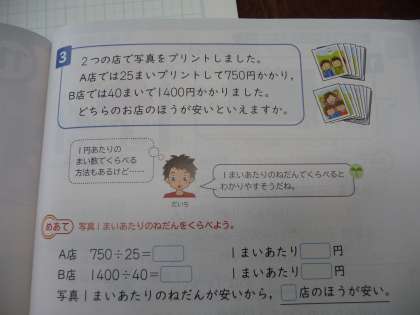 3
2つの店で写真をプリントしました。
A店では25まいプリントして750円かかり,
B店では40まいで1400円かかりました。
どちらのお店のほうが安いといえますか。
1円あたりの
まい数でくらべる
方法もあるけど……
1まいあたりのねだんでくらべると
わかりやすそうだね。
だいち
めあて 写真1まいあたりのねだんをくらべよう。
A店 750÷25= 1まいあたり 円
B店 1400÷40= 1まいあたり 円
写真1まいあたりのねだんが安いから, 店のほうが安い。